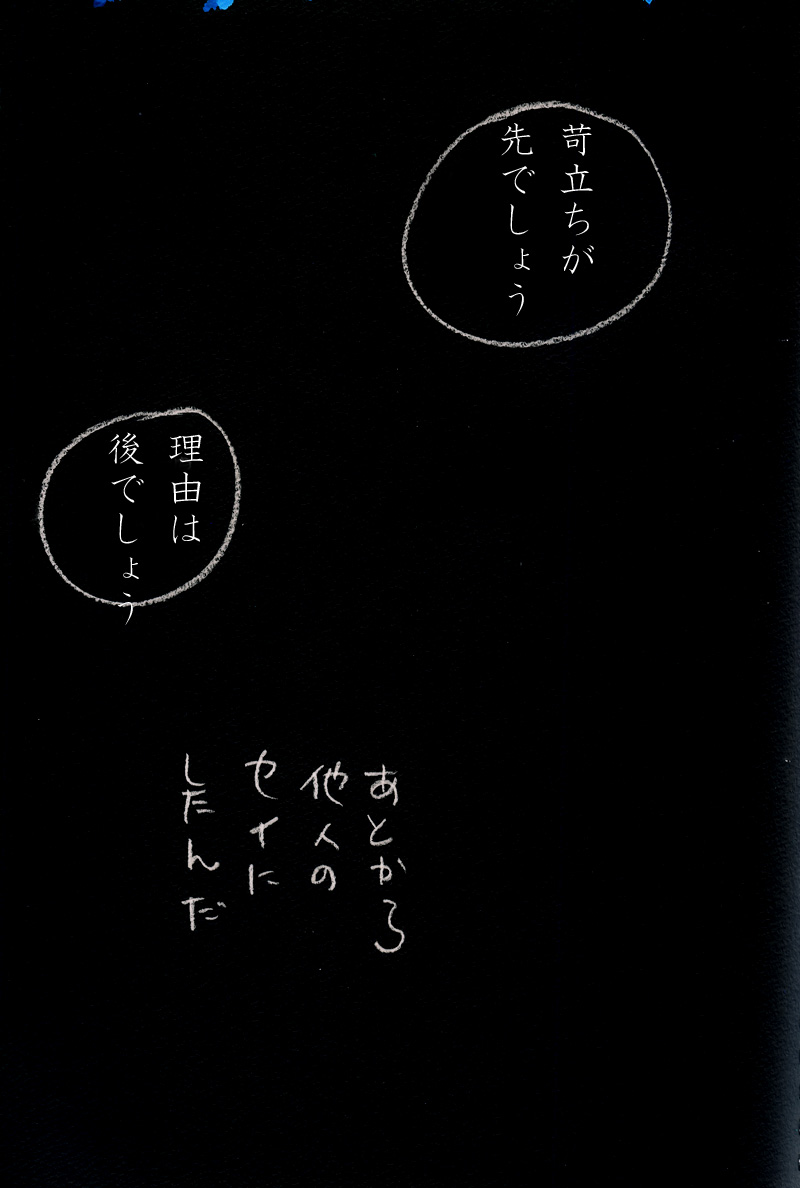 苛立ちが
先でしょう
理由は
後でしょう
あとから
他人の
セイに
したんだ